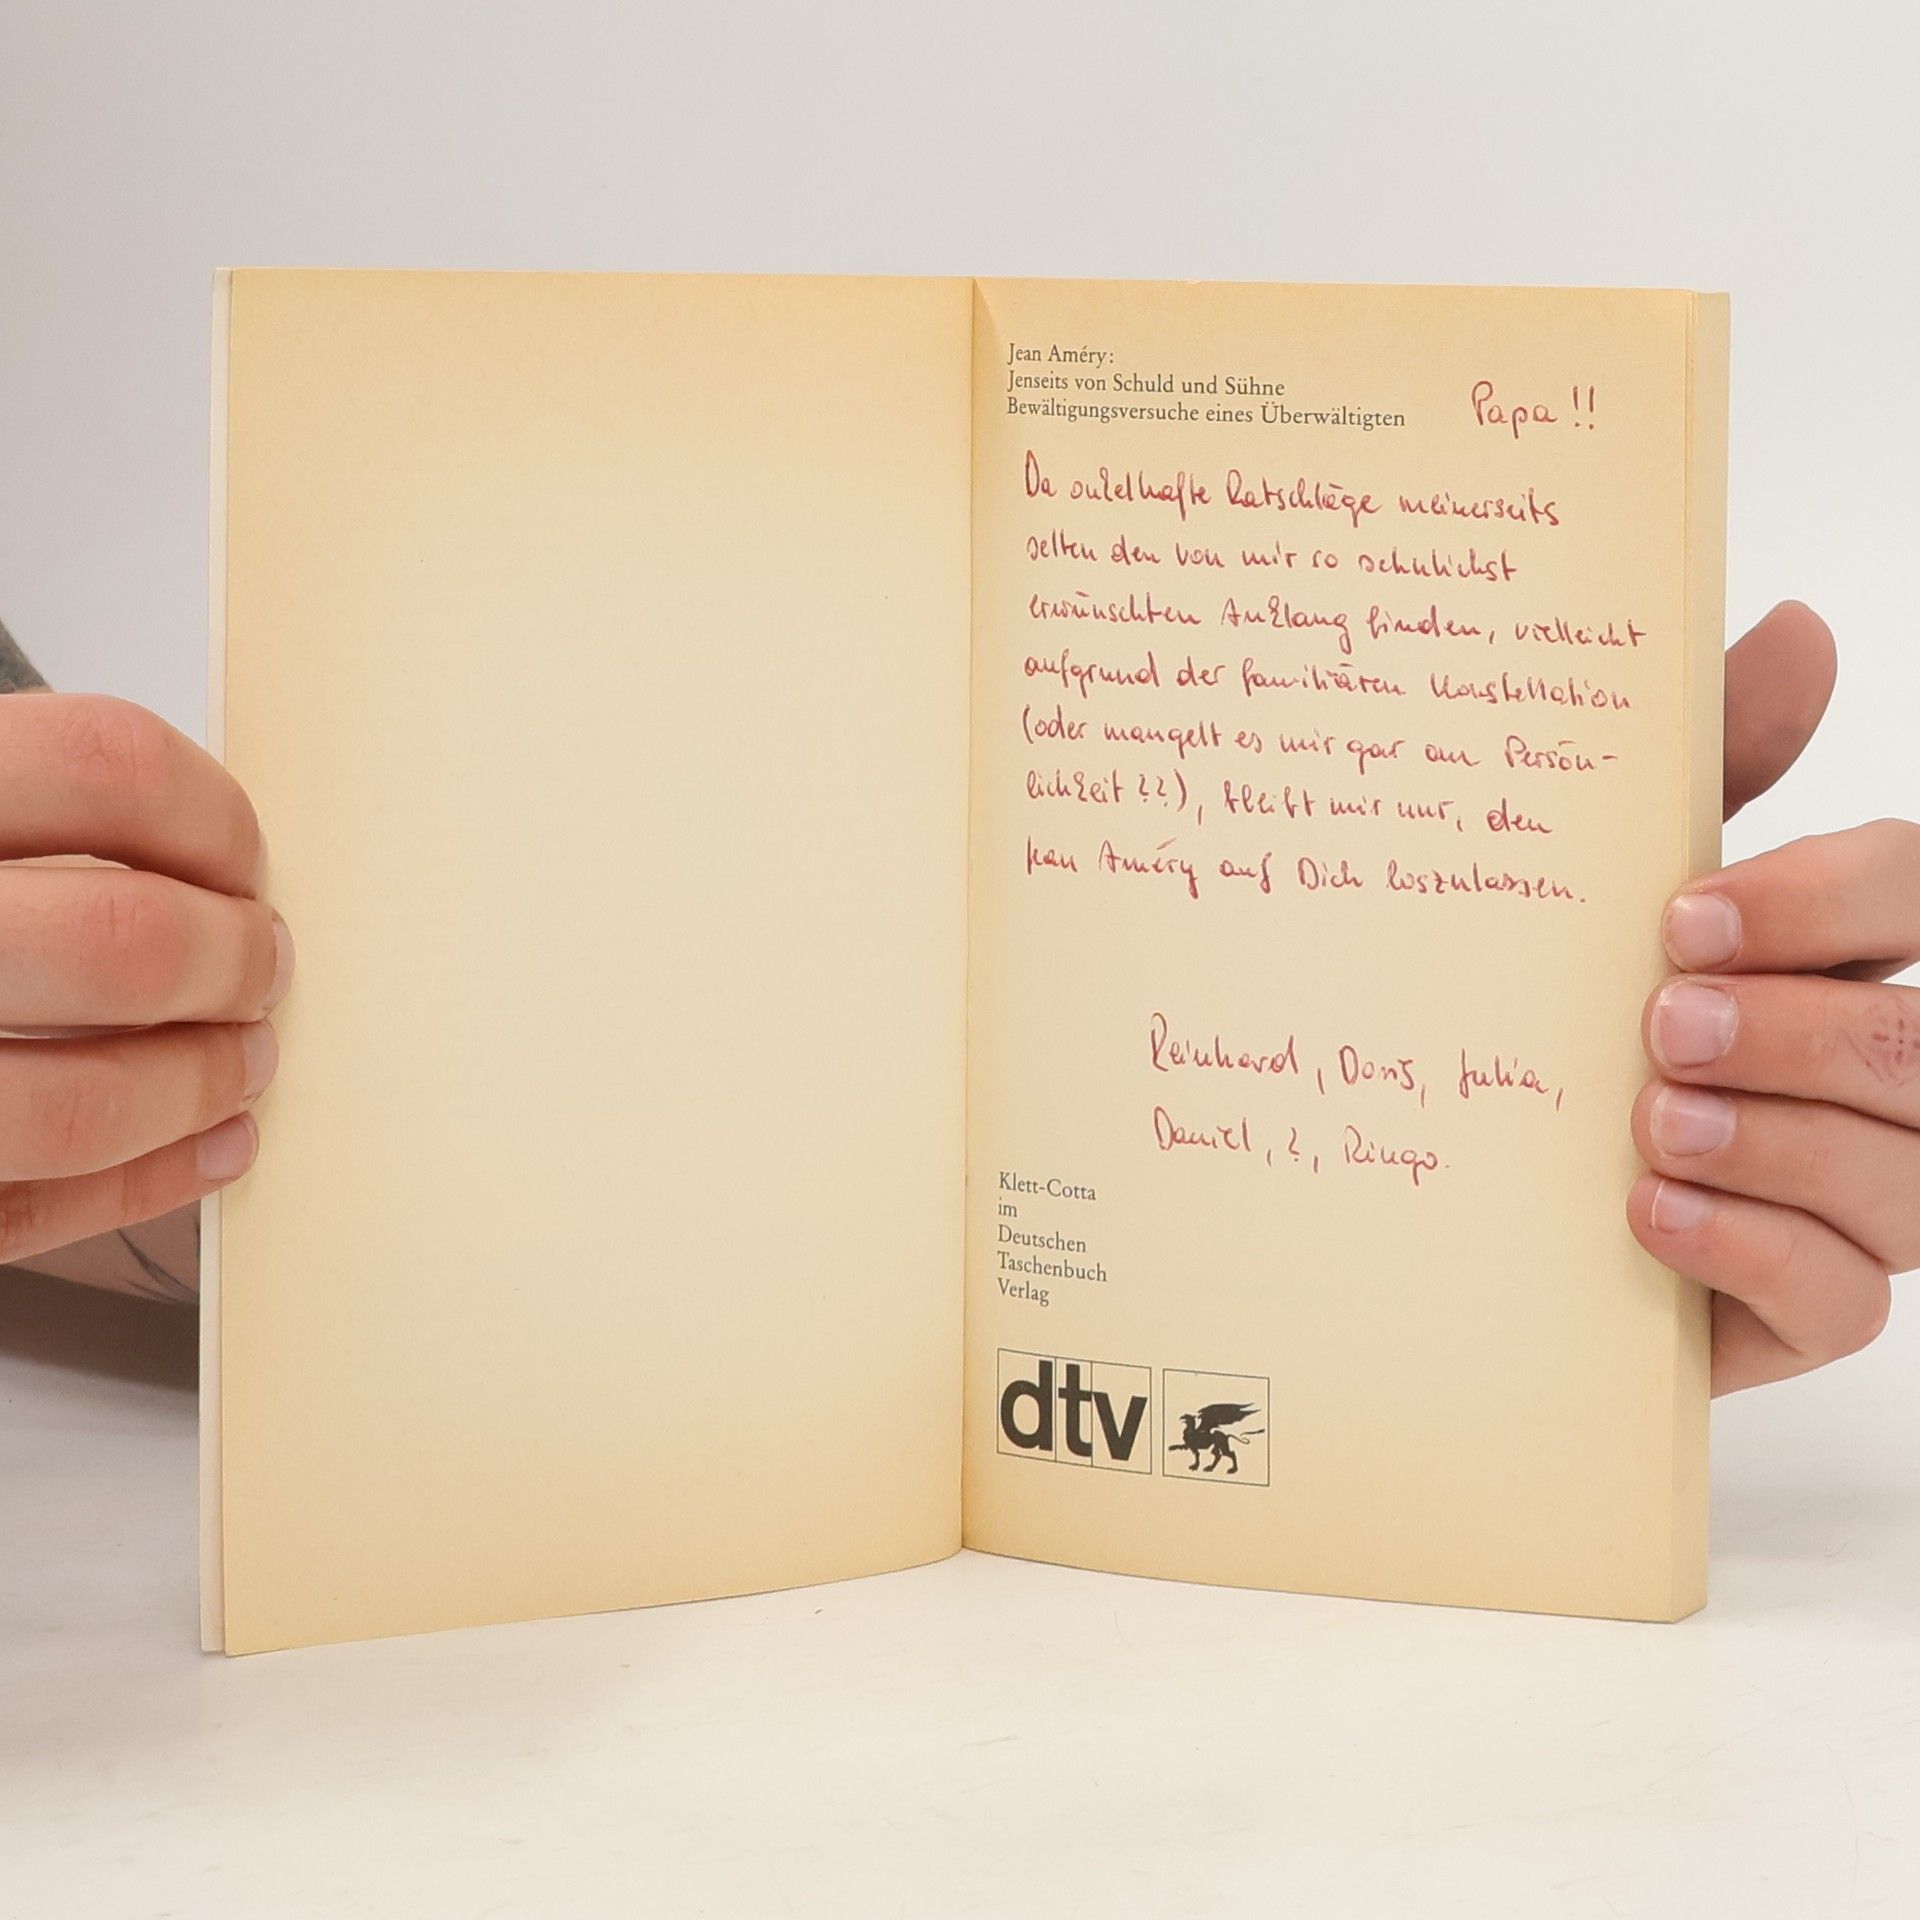 Jean Améry:
Jenseits von Schuld und Sühne
Bewältigungsversuche eines Überwältigten
Papa !!
Da onkelhafte Ratschläge meinerseits
selten den von mir so sehnlichst
erwünschten Anklang finden, vielleicht
aufgrund der familiären Konstellation
(oder mangelt es mir gar an Persön-
lichkeit ??), bleibt mir nur, den
Jean Améry auf Dich loszulassen.
Reinhard, Doris, Julia,
Daniel, ?, Ringo.
Klett-Cotta
im
Deutschen
Taschenbuch
Verlag
dtv